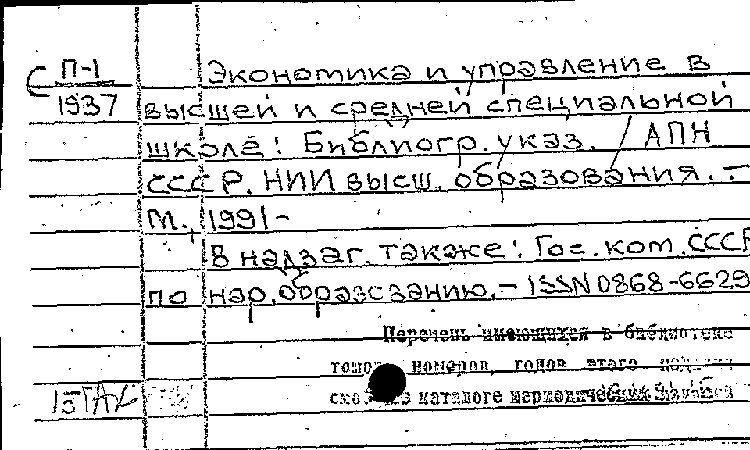 С П-1
1937
Экономика и управление в
высшей и средней специальной
школе: Библиогр. указ. / АПН
СССР. НИИ высш. образования. –
М., 1991-
В надзаг. также: Гос. ком. СССР
по нар. образованию. – ISSN 0868-6629
Перечень имеющихся в библиотеке
томов, номеров, годов этого
каталоге периодических